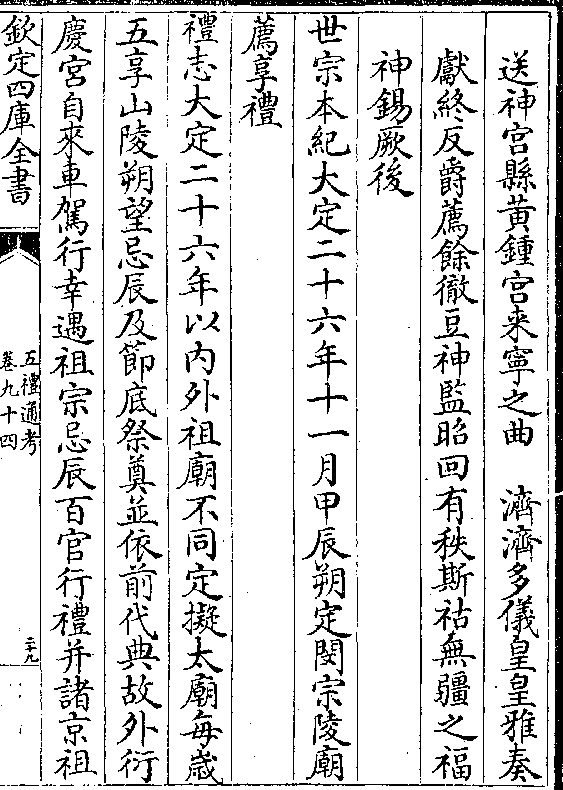 送神宫縣黄鍾宫来寧之曲　濟濟多儀皇皇雅奏
獻終反爵薦餘徹豆神監昭回有秩斯祜無疆之福
神錫厥後
世宗本紀大定二十六年十一月甲辰朔定閔宗陵廟
薦享禮
禮志大定二十六年以内外祖廟不同定擬太廟每歲
五享山陵朔望忌辰及節底祭奠並依前代典故外衍
慶宮自來車駕行幸遇祖宗忌辰百官行禮并諸京祖
欽定四庫全書
五禮通考
卷九十四
二十九